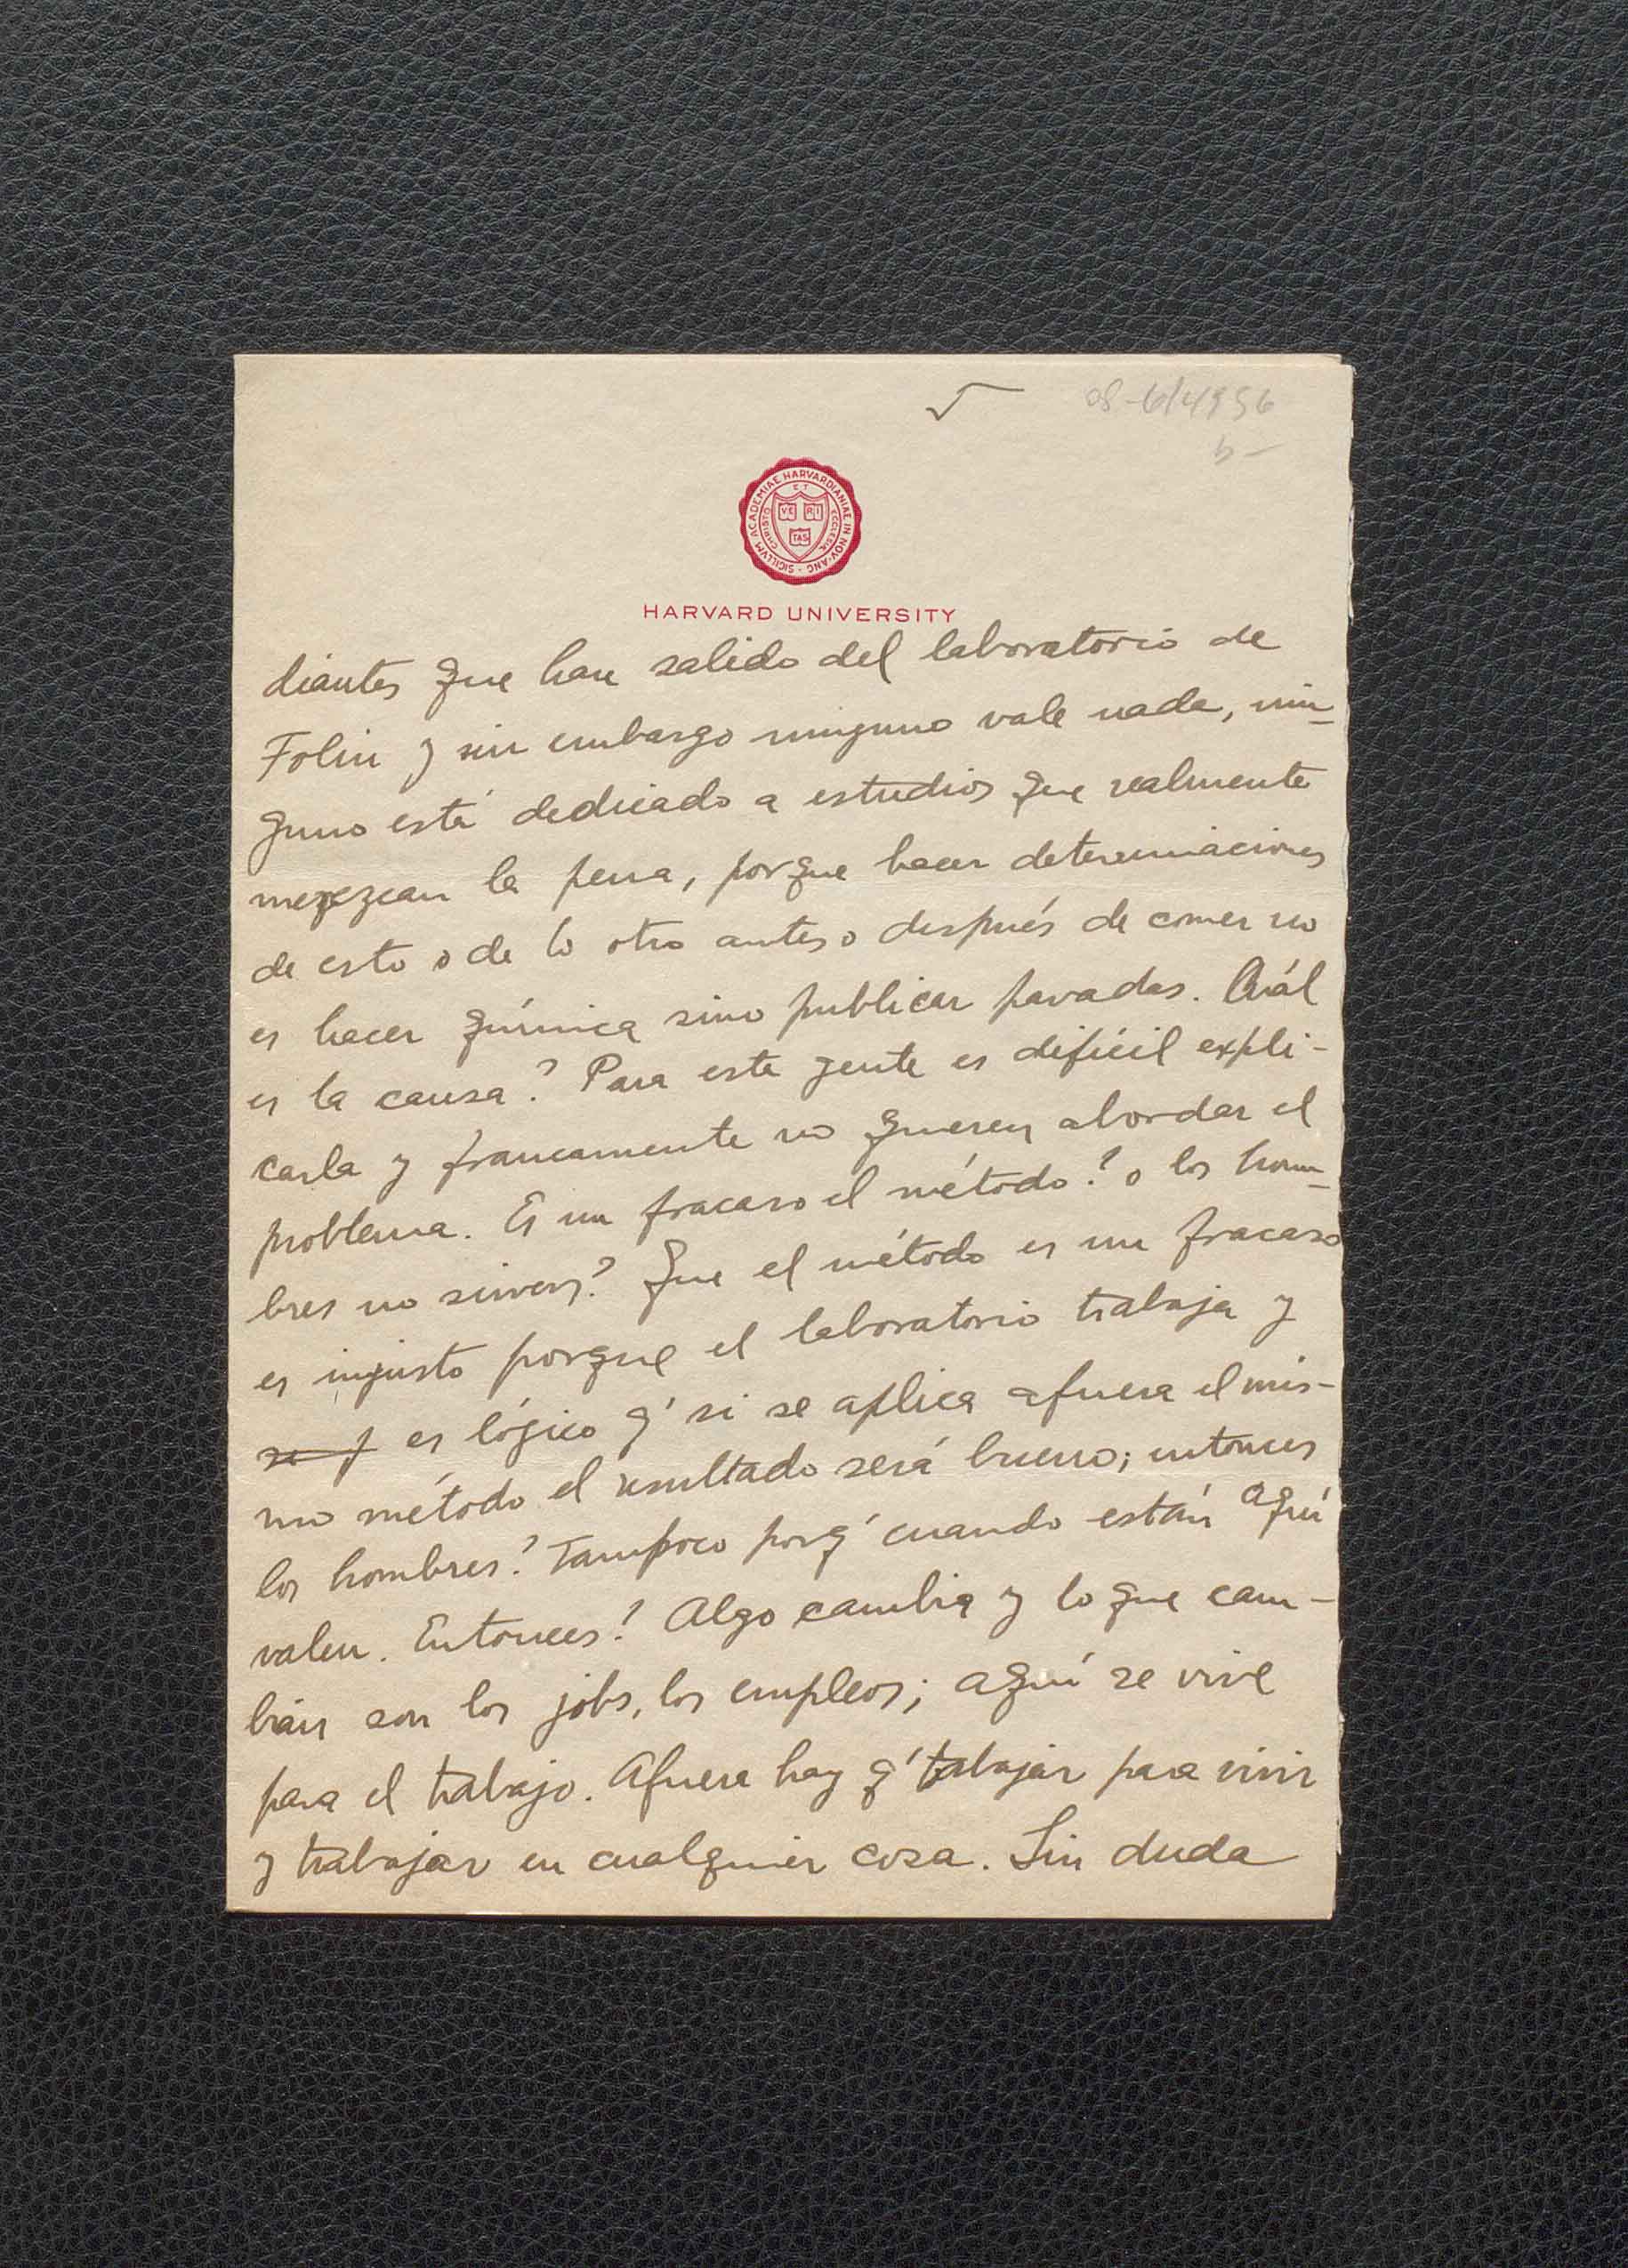 √ 08-6/4956
b-
SIGILLVM ACADEMIAE HARVARDIANAE IN NOV. ANG.
CHRISTO ET ECCLESIAE
VE RI
TAS
HARVARD UNIVERSITY
diantes que han salido del laboratorio de
Folin y sin embargo ninguno vale nada, nin-
guno está dedicado a estudios que realmente
merezcan la pena, porque hacer determinaciones
de esto o de lo otro antes o después de comer no
es hacer química sino publicar pavadas. Cuál
es la causa? Para esta gente es difícil expli-
carla y francamente no quieren abordar el
problema. Es un fracaso el método? o los hom-
bres no sirven? Que el método es un fracaso
es injusto porque el laboratorio trabaja y
es lógico q' si se aplica afuera el mis-
mo método el resultado será bueno; entonces
los hombres? Tampoco porq' cuando están aquí
valen. Entonces? Algo cambia y lo que cam-
bian son los jobs, los empleos; aquí se vive
para el trabajo. Afuera hay q' trabajar para vivir
y trabajar en cualquier cosa. Sin duda